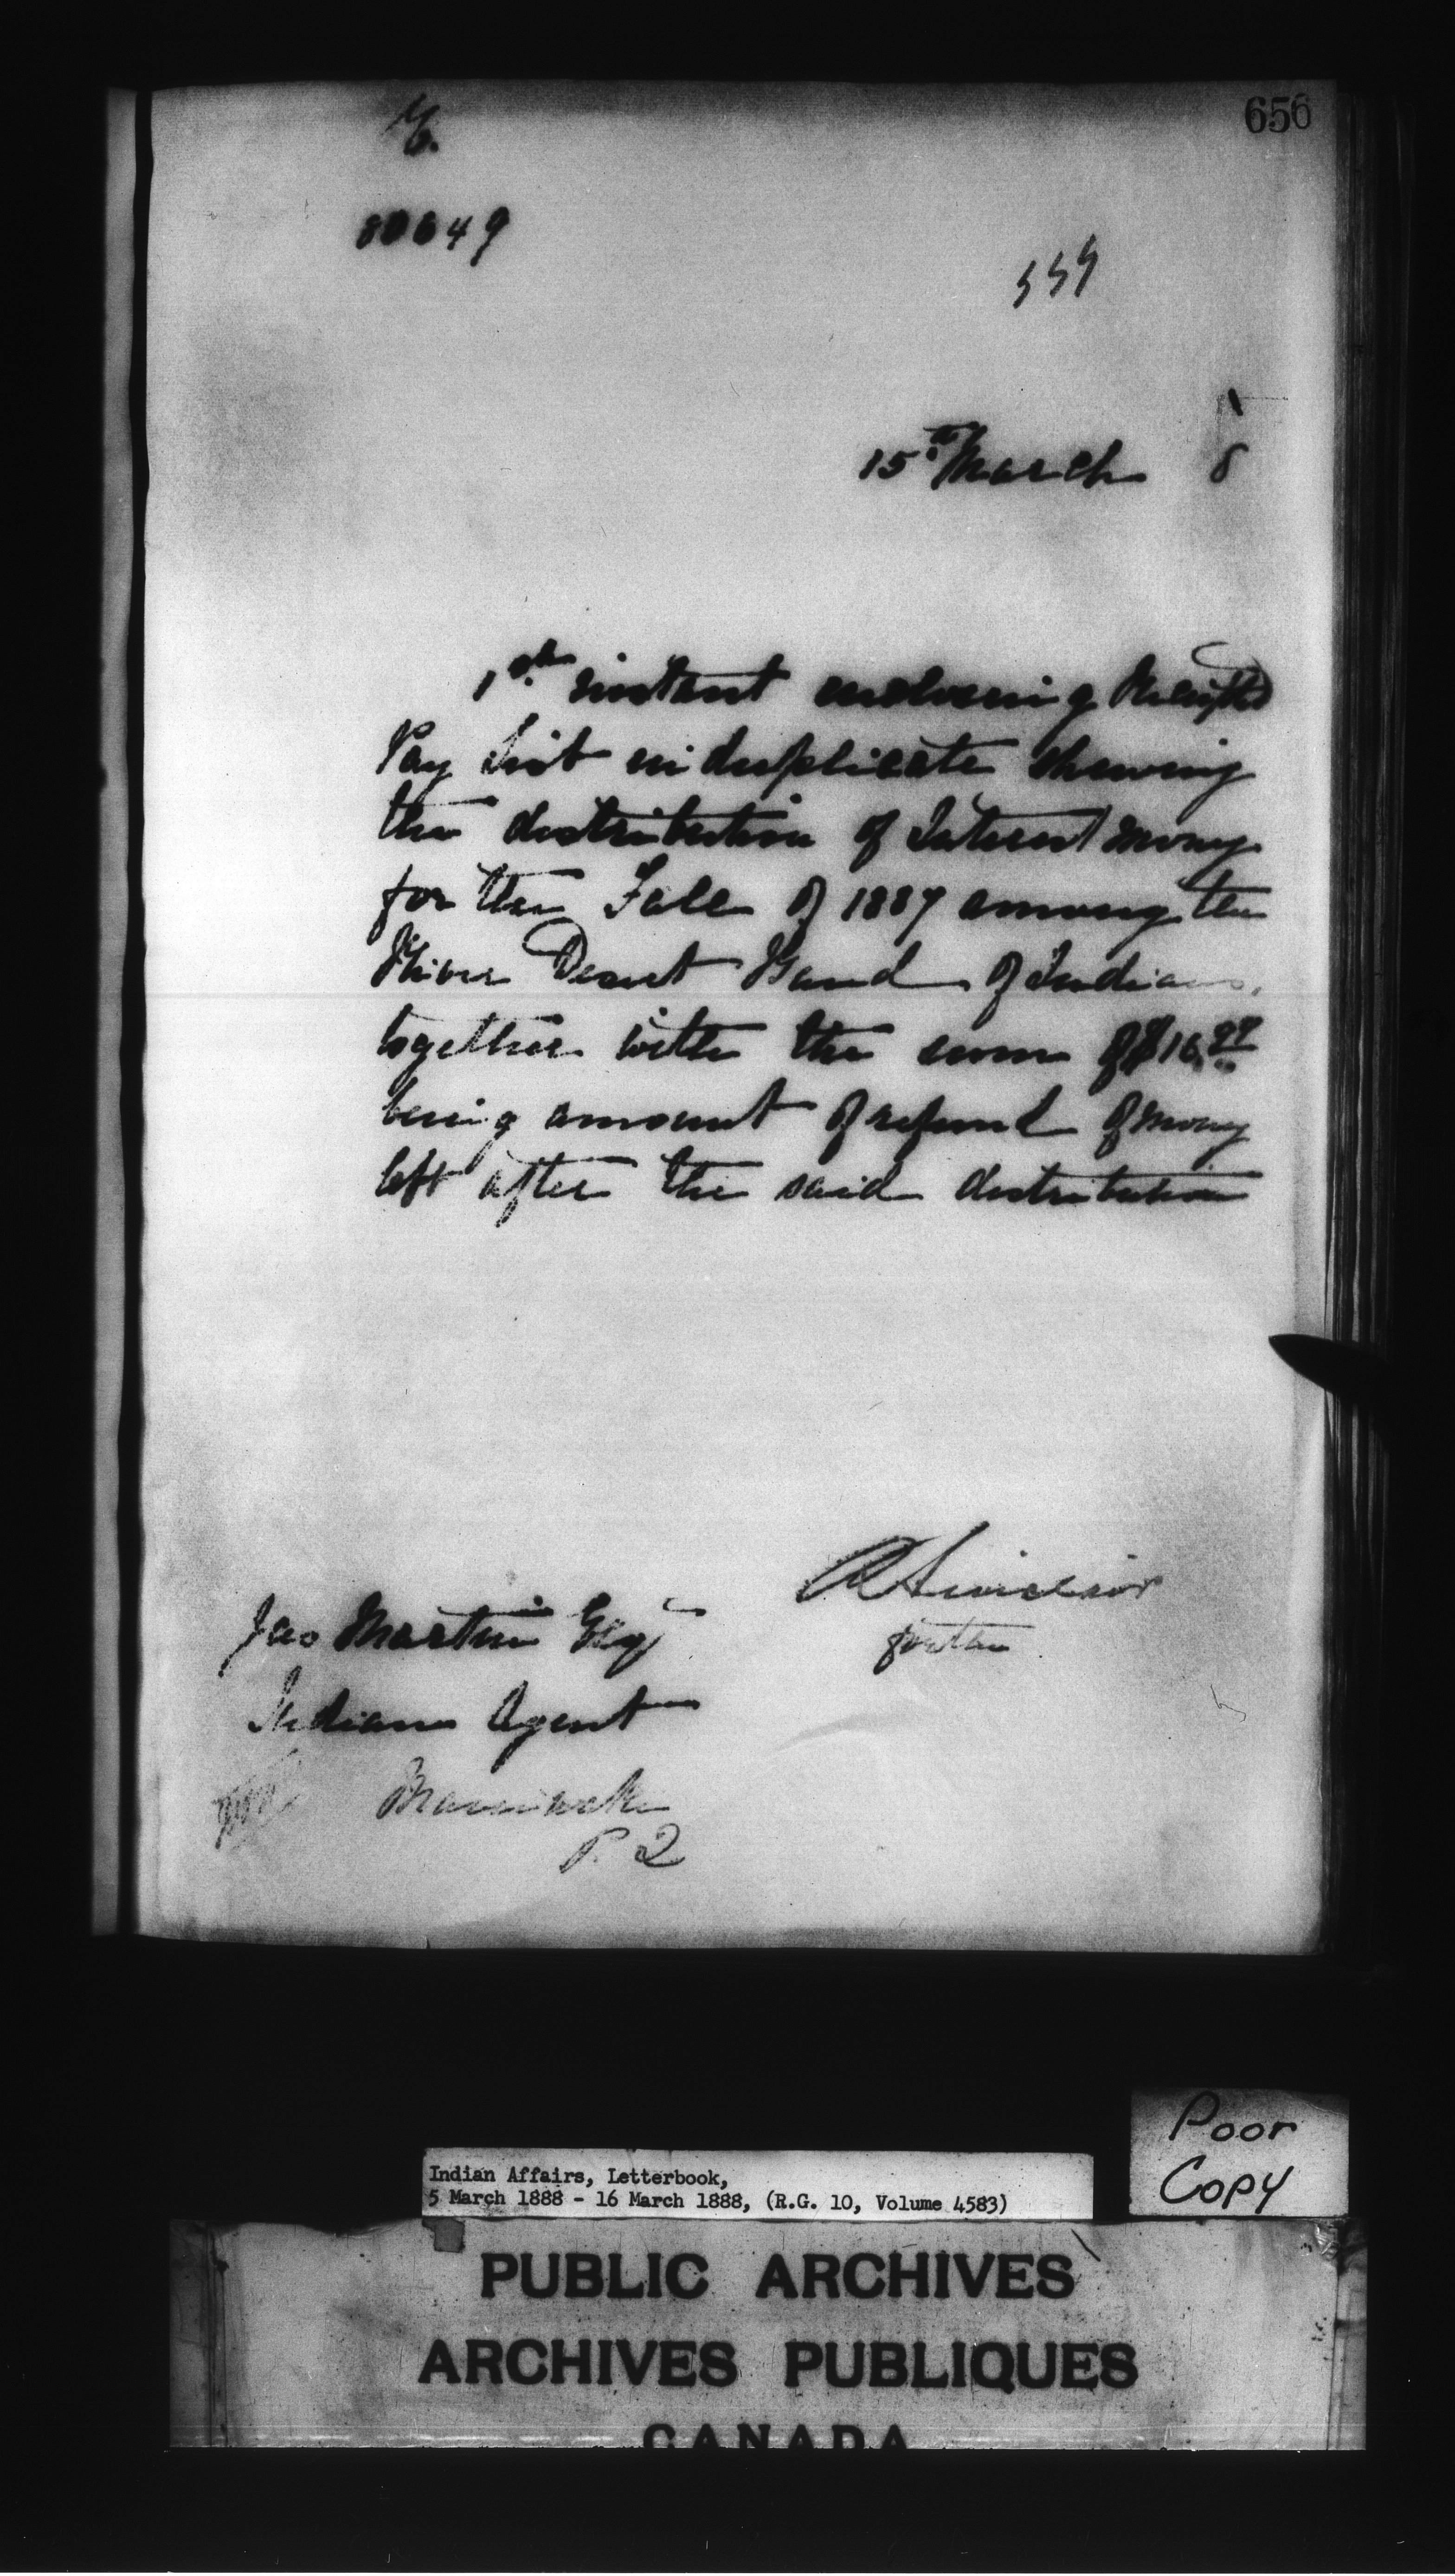 656
80649
15th March 8
1st instant enclosing Receipted
Pay List in duplicate shewing
the distribution of Interest money
for the Fall of 1887 among the
River Desert Band of Indians,
together with the sum of $16.97
being amount of refund of money
left after the said distribution
R Sinclair
for the
Jas Martin Esq
Indian Agent
Maniwaki
P. Q
Poor
Copy
Indian Affairs, Letterbook,
5 March 1888 - 16 March 1888, (R.G. 10, Volume 4583)
PUBLIC ARCHIVES
ARCHIVES PUBLIQUES
CANADA